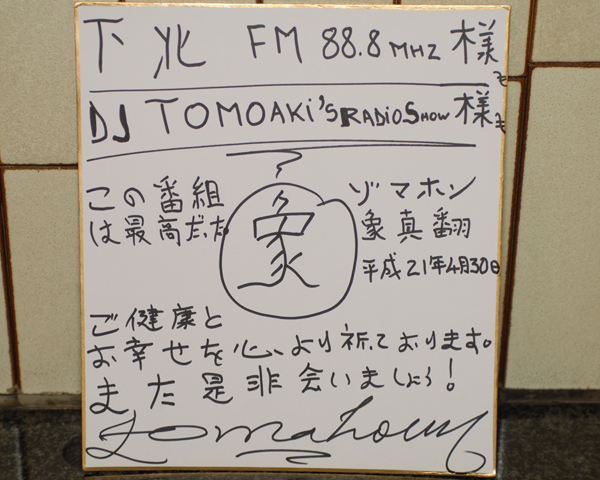 下北 FM 88.8 MHZ 様
DJ TOMOAKI'S RADIO SHOW 様
この番組
は最高だった
ゾマホン
象真翻
平成21年4月30日
象
ご健康と
お幸せを心より祈っております。
また是非会いましょう!